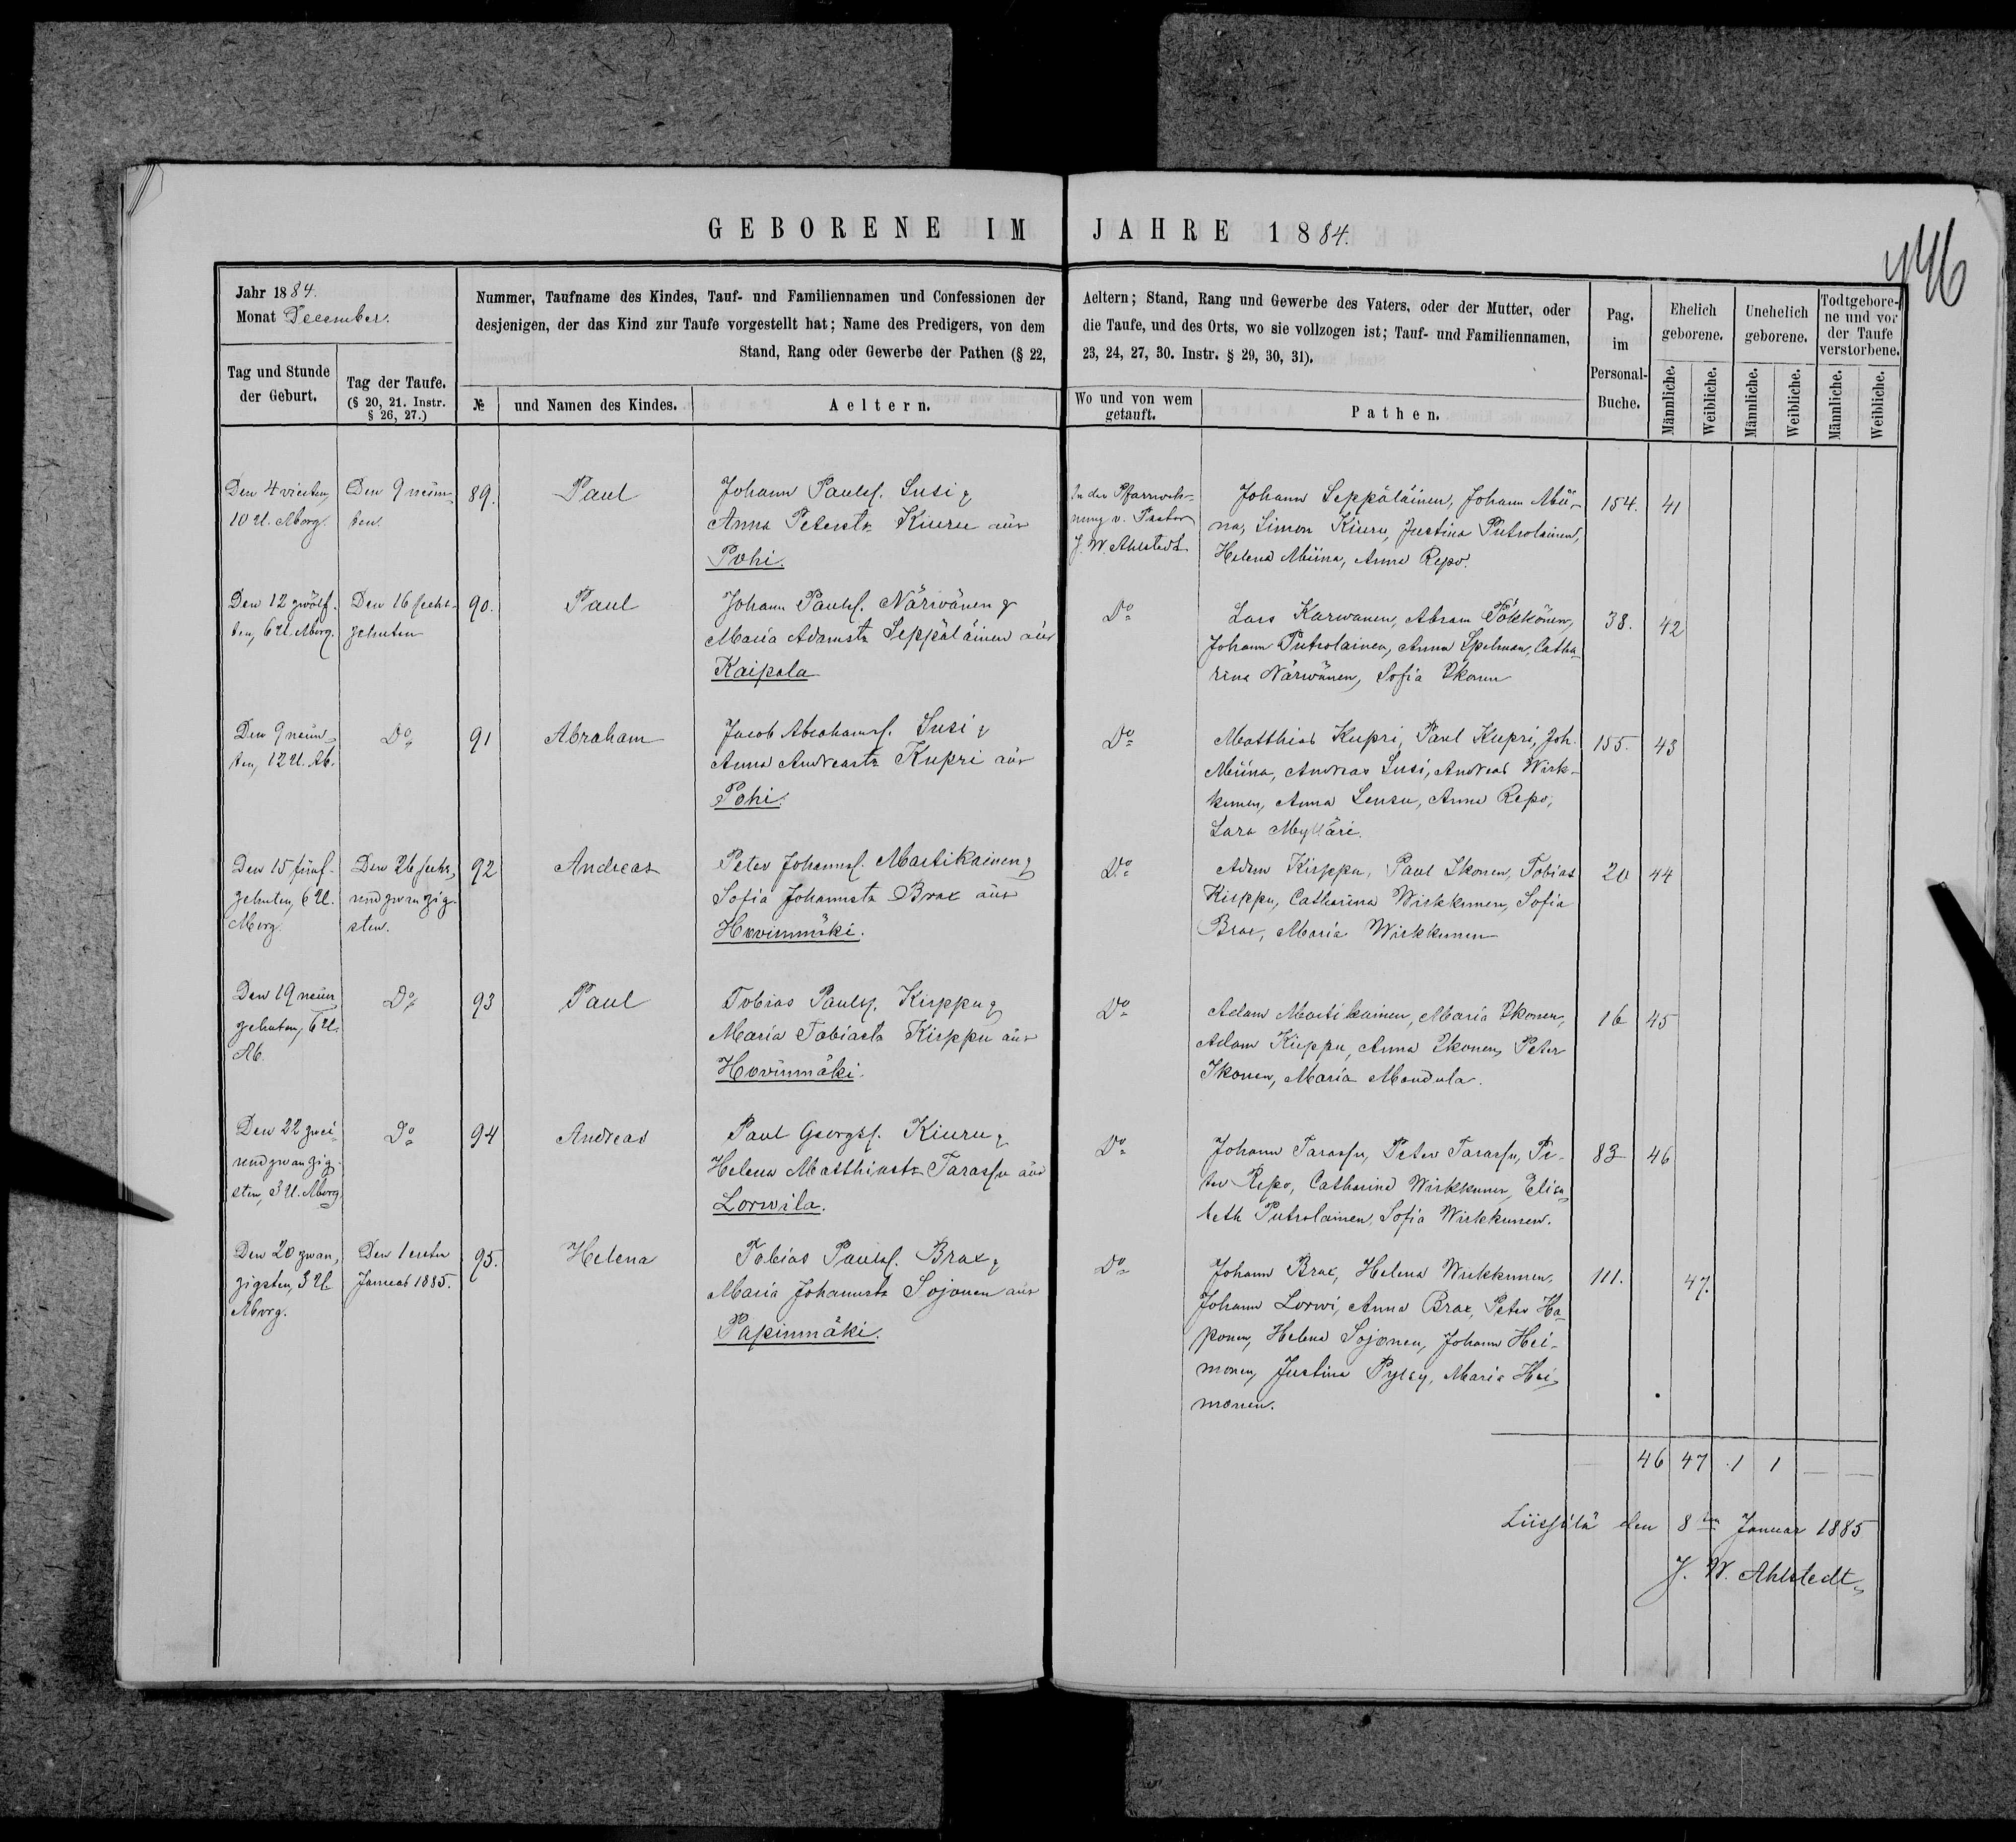 GEBORENE IM JAHRE 1884.
446
Jahr 1884.
Monat December.
Nummer, Taufname des Kindes, Tauf- und Familiennamen und Confessionen der
desjenigen, der das Kind zur Taufe vorgestellt hat; Name des Predigers, von dem
Stand, Rang oder Gewerbe der Pathen (§ 22,
Aeltern; Stand, Rang und Gewerbe des Vaters, oder der Mutter, oder
die Taufe, und des Orts, wo sie vollzogen ist; Tauf- und Familiennamen,
23, 24, 27, 30. Instr. § 29, 30, 31).
Pag.
im
Personal-
Buche.
Ehelich
geborene.
Unehelich
geborene.
Todtgebore-
ne und vor
der Taufe
verstorbene.
Tag und Stunde
der Geburt.
Tag der Taufe.
(§ 20, 21. Instr.
§ 26, 27.)
№
und Namen des Kindes.
Aeltern.
Wo und von wem
getauft.
Pathen.
Männliche.
Weibliche.
Männliche.
Weibliche.
Männliche.
Weibliche.
Den 4 vierten,
10 U. Morg.
Den 9 neun-
ten.
89.
Paul
Johann Paulsf. Susi &
Anna Peterstr Kiuru aus
Pohi.
In der Pfarrwoh-
nung v. Pastor
J. W. Ahlstedt
Johann Seppäläinen, Johann Mii-
na, Simon Kiuru, Justina Putrolainen,
Helena Miina, Anna Repo.
154. 41
Den 12 zwölf-
ten, 6 U. Morg.
Den 16 sechs-
zehnten
90.
Paul
Johann Paulsf. Närwänen &
Maria Adamstr Seppäläinen aus
Kaipola
Do
Lars Karwanen, Abram Pökkönen,
Johann Putrolainen, Anna Spelman, Catha-
rina Närwänen, Sofia Ikonen
38. 42
Den 9 neun-
ten, 12 U. Ab.
Do
91
Abraham
Jacob Abrahamsf. Susi &
Anna Andreastr Kupri aus
Pohi.
Do
Matthias Kupri, Paul Kupri, Joh.
Miina, Andreas Susi, Andreas Wirk-
kunen, Anna Sensu, Anna Repo,
Sara Mylläri.
155. 43
Den 15 fünf-
zehnten, 6 U.
Morg.
Den 26 sechs-
undzwanzig-
sten.
92
Andreas
Peter Johannsf. Martikainen &
Sofia Johannstr Brax aus
Howinmäki.
Do
Adam Kirppu, Paul Ikonen, Tobias
Kirppu, Catharina Wirkkunen, Sofia
Brax, Maria Wirkkunen
20 44
Den 19 neun-
zehnten, 6 U.
Ab.
Do
93
Paul
Tobias Paulsf. Kirppu &
Maria Tobiastr Kirppu aus
Howinmäki.
Do
Adam Martikainen, Maria Ikonen,
Adam Kirppu, Anna Ikonen, Peter
Ikonen, Maria Mondula.
16 45
Den 22 zwei-
undzwanzig-
sten, 3 U. Morg.
Do
94
Andreas
Paul Georgsf. Kiuru &
Helena Matthiastr Tarassu aus
Lorwila.
Do
Johann Tarassu, Peter Tarassu, Pe-
ter Repo, Catharina Wirkkunen, Elisa-
beth Putrolainen, Sofia Wirkkunen.
83 46
Den 20 zwan-
zigsten, 3 U.
Morg.
Den 1 ersten
Januar 1885.
95.
Helena
Tobias Paulsf. Brax &
Maria Johannstr Sojonen aus
Papinmäki.
Do
Johann Brax, Helena Wirkkunen,
Johann Lorwi, Anna Brax, Peter Ha-
ponen, Helena Sojonen, Johann Hei-
monen, Justina Pylsy, Maria Hei-
monen.
111. 47.
46 47 1 1 — —
Liissilä den 8ten Januar 1885
J. W. Ahlstedt